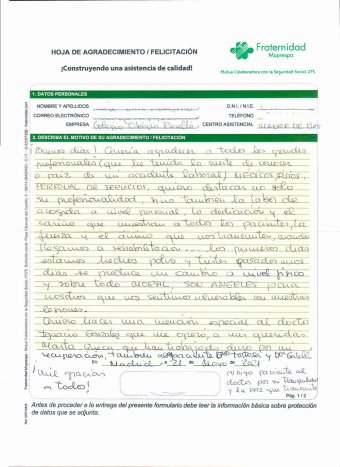 HOJA DE AGRADECIMIENTO / FELICITACIÓN
¡Construyendo una asistencia de calidad!
Fraternidad
Muprespa
Mutua Colaboradora con la Seguridad Social, 275
1. DATOS PERSONALES
NOMBRE Y APELLIDOS
D.N.I. / N.I.E.
CORREO ELECTRÓNICO
TELÉFONO
EMPRESA Colegio
CENTRO ASISTENCIAL MADRE DE DIOS
2. DESCRIBA EL MOTIVO DE SU AGRADECIMIENTO / FELICITACIÓN
¡Buenos días! Quería agradecer a todos los grandes
profesionales (que he tenido la suerte de conocer
a raíz de mi accidente laboral) MEDICOS, FISIOS,
PERSONAL DE SERVICIOS, quiero destacar no solo
su profesionalidad, sino también la labor de
acogida a nivel personal, la dedicación y el
cariño que muestran a todos los pacientes, la
fuerza y el ánimo que nos transmiten, cuando
llegamos a rehabilitación... los primeros días
estamos hechos polvo y tristes pasados unos
días se produce un cambio a nivel físico
y sobre todo MORAL, SON ANGELES para
nosotros que nos sentimos vulnerables con nuestras
lesiones.
Quiero hacer una mención especial al doctor
Ignacio González que me operó, a mis queridas
Marta que han trabajado duro por mi
recuperación, también
Madrid 21 Mayo 2021
¡Mil gracias
a todos!
paciente al
doctor por su tranquilidad
y la paz que transmite
Pág. 1 / 2
Antes de proceder a la entrega del presente formulario debe leer la información básica sobre protección
de datos que se adjunta.